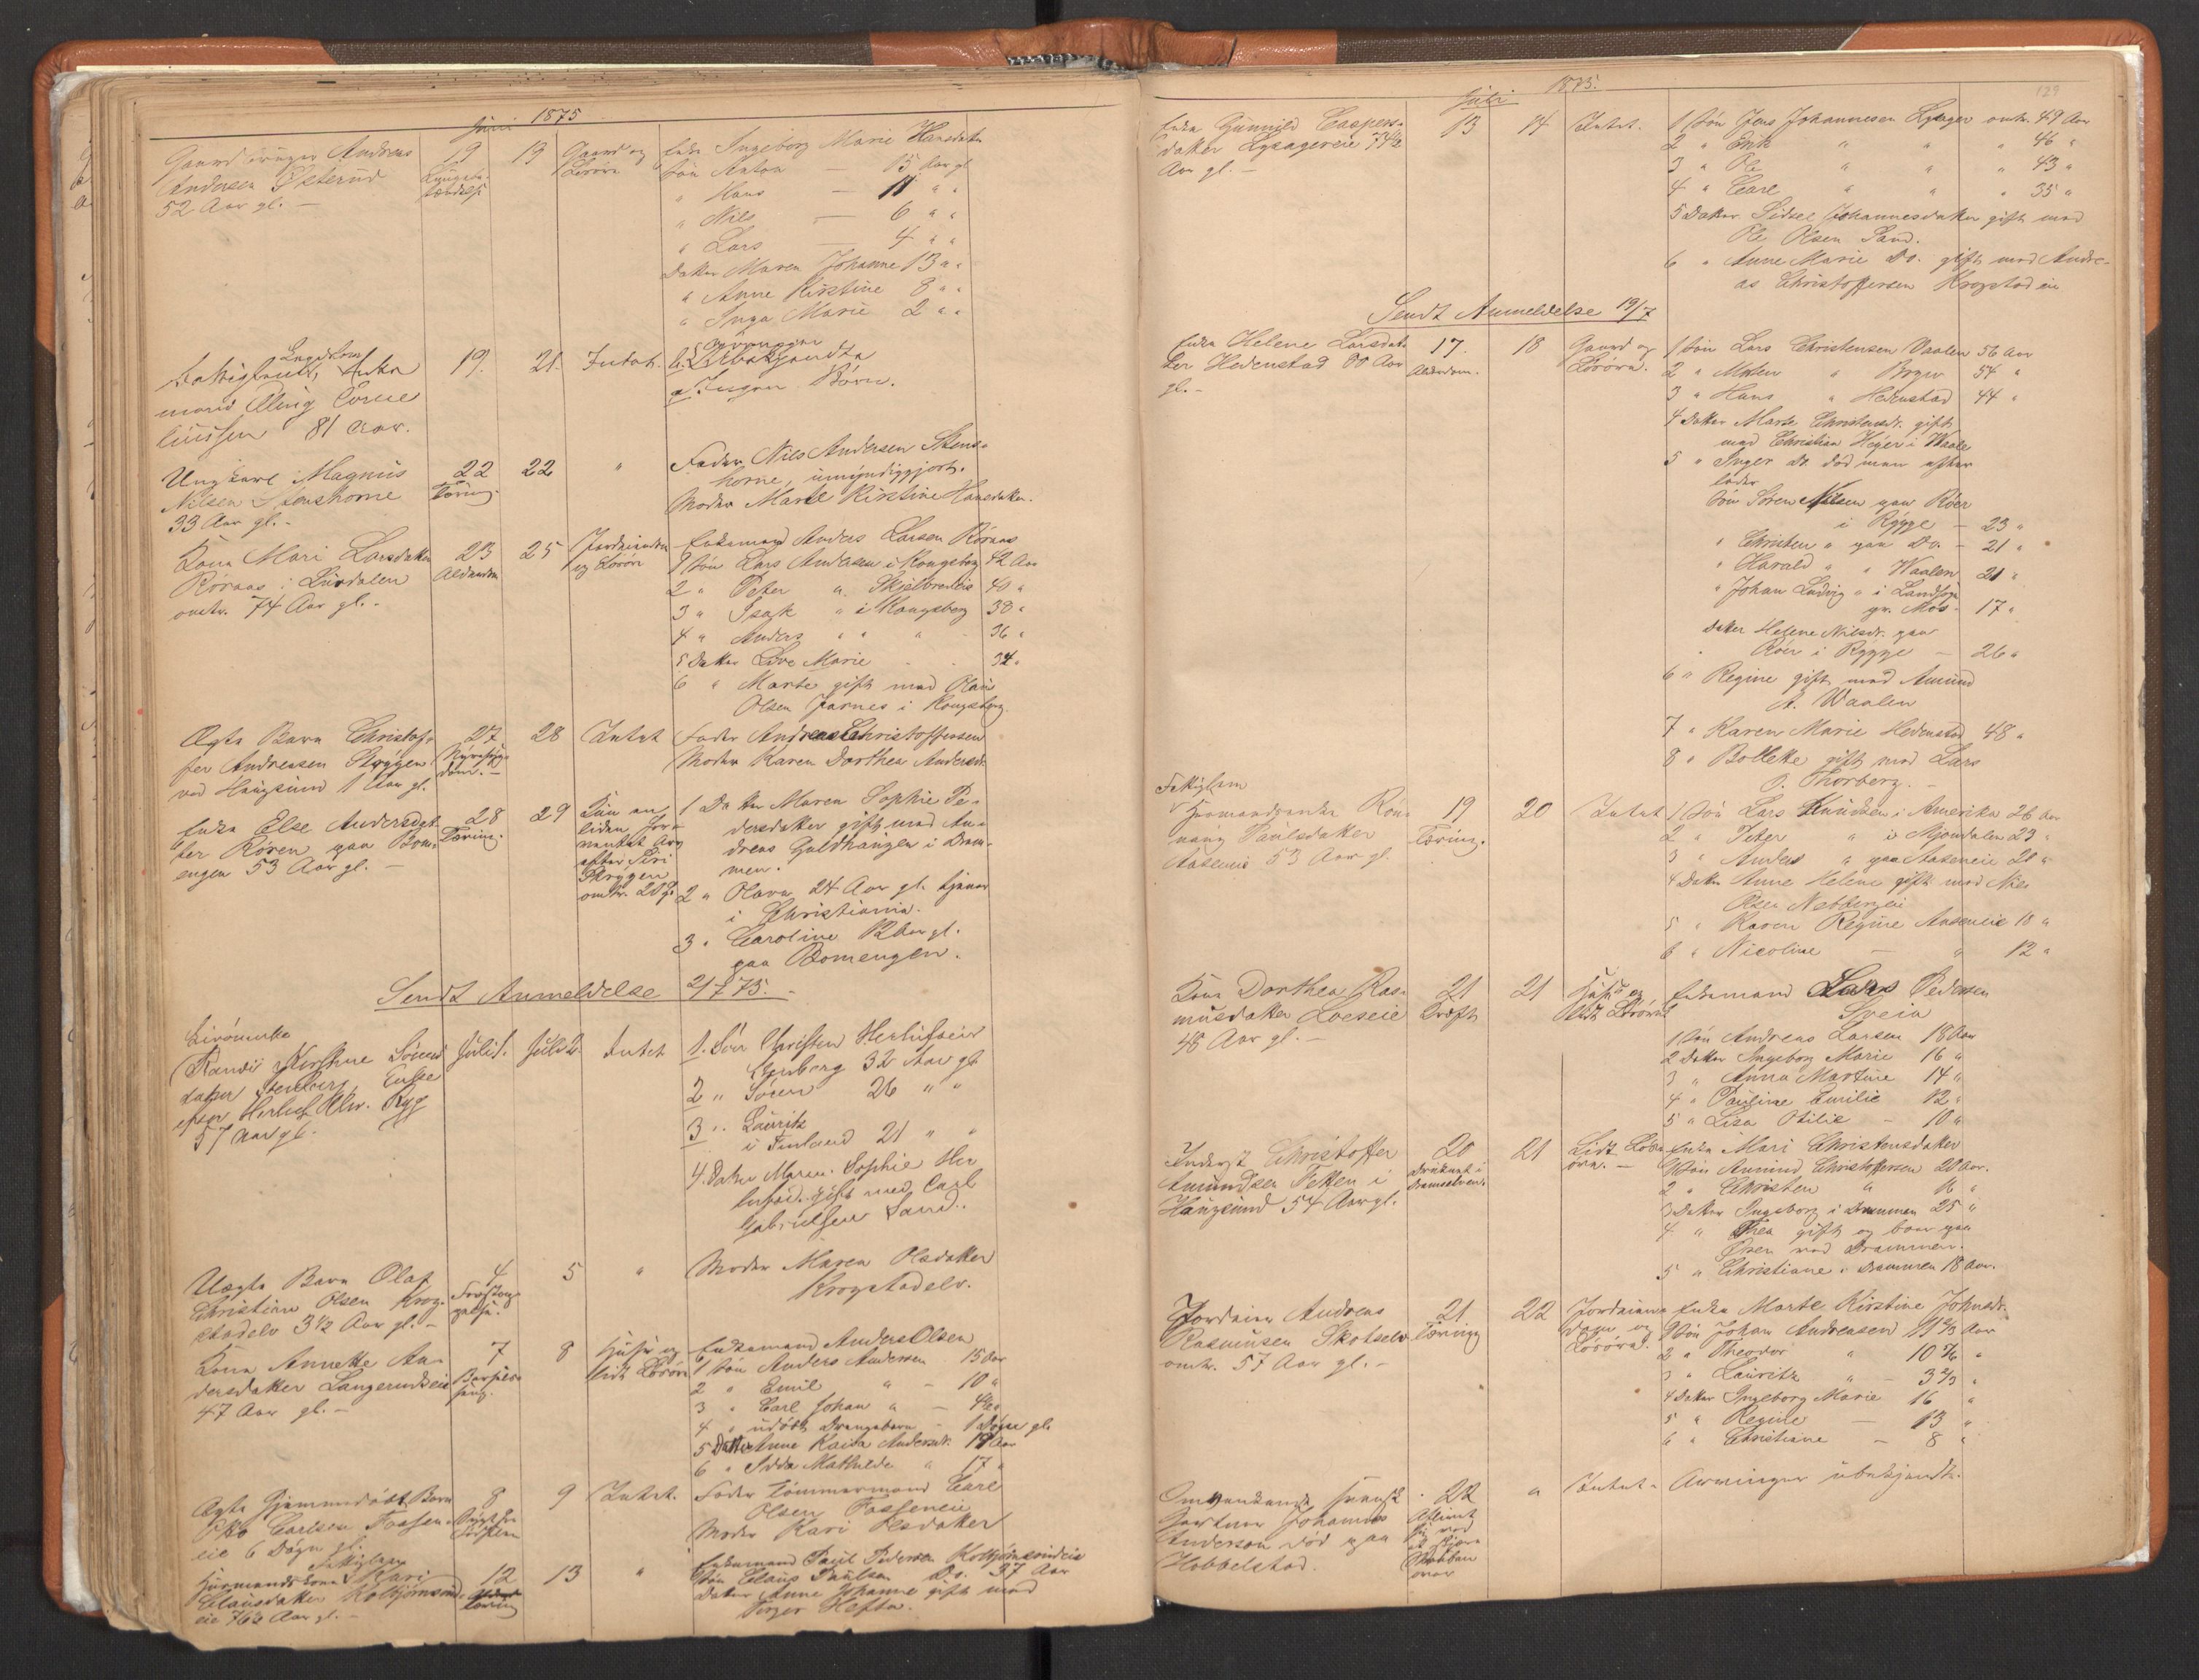 Juni 1875
Gaardbruger Andreas
Andersen Østerud
52 Aar gl. -
19
Lungebe-
tændelse
19
Gaard og
Løsøre
Enke Ingeborg Marie Hansdatter
Søn Anton — 15 Aar gl
" Hans — 11 " "
" Nils — 6 " "
" Lars — 4 " "
Datter Maren Johanne 13 " "
" Anne Kirstine 8 " "
" Inga Marie 2 " "
Lægdslem
Enke
mand Corne
liussen 81 Aar.
19.
21.
Intet.
Ingen Børn.
Ungkarl Magnus
Nilsen Stenshorne
33 Aar gl. -
22
Tæring.
22
"
Fader Nils Andersen Stens-
horne, umyndiggjort.
Moder Marte Kirstine Hansdatter.
Kone Mari Larsdatter
Røraas i
omtr. 74 Aar gl. -
23
Alderdom
25
Jordeiendom
og Løsøre
Enkemand Anders Larsen Røraas
1 Søn Lars Andersen i Kongsberg 42 Aar
2 " Peter " 40 "
3 " Isak " i Kongsberg 38 "
4 " Anders " " " 36 "
5 Datter Live Marie 34 "
6 " Marte gift med Olaus
Olsen Jarnes i Kongsberg.
Ægte Barn Christof-
fer Andreasen Skryggen
ved Haugsund 1 Aar gl.
27
Nyresyg-
dom. -
28
Intet
Fader Andreas Christoffersen
Moder Karen Dorthea Andersdr.
Enke Else Andersdat-
ter Røren paa Bom-
engen 53 Aar gl. -
28
Tæring.
29
Kun en
liden for-
ventet Arv
efter Siri
Skryggen
omtr. 20
1 Datter Maren Sophie Pe-
dersdatter gift med An-
dreas Guldhaugen i Dram-
men.
2 " Olava 24 Aar gl. tjener
i Christiania.
3 " Caroline 12 Aar gl.
paa Bomengen.
Sendt Anmeldelse 2/7 75. -
Randi Kirstine Sørens
datter Stenberg, Enke
efter Herluf Ryg
57 Aar gl.
Juli 1.
Juli 2.
Intet
1. Søn Christen Herlufsen
Stenberg 32 Aar gl
2 " Søren 26 " "
3 " Lauritz
i Finland 21 " "
4. Datter Maren Sophie Her
lufsd. gift med Carl
Gabrielsen Sand.
Uægte Barn Olaf
Christian Olsen Krog-
stadelv 3½ Aar gl. -
4
5
"
Moder Maren Olsdatter
Krogstadelv.
Kone Annette An-
dersdatter Langerudeie
47 Aar gl. -
7
Barsels-
seng.
8
Huse og
lidt Løsøre
Enkemand Anders Olsen
1 Søn Anders Andersen 15 Aar
2 " Emil " — 10 "
3 " Carl Johan " —
4 " udøbt Drengebarn - 1 Døgn gl.
5 Datter Anne Andersdr. 19 Aar
6 " Idda Mathilde " 17 "
Ægte Hjemmedøbt Barn
Carlsen Fossen-
eie 6 Døgn gl.
8
9
Intet.
Fader Tømmermand Carl
Olsen Fosseneie
Moder Kari Olsdatter
Fattiglem
Husmandskone Kari
Clausdatter Kolbjørnsrud-
eie 76½ Aar gl. -
12
Tæring
13
"
Enkemand Paul Pedersen Kolbjørnsrudeie
Søn Claus Paulsen Do. 37 Aar
Datter Anne Johanne gift med
Hefte.
Juli 1875.
129
Enke Gunnild Caspers-
datter 74½
Aar gl. -
13
14
Intet.
1 Søn Jens Johannesen omtr. 49 Aar
2 " Erik " " " 46 "
3 " Ole " " " 43 "
4 " Carl " " " 35 "
5 Datter Sidsel Johannesdatter gift med
Ole Olsen Sand.
6 " Anne Marie Do. gift med Andre-
as Christoffersen Krogstadeie
Sendt Anmeldelse 19/7
Enke Helene Larsdat-
ter Hedenstad 80 Aar
gl. -
17.
Alderdom.
18
Gaard og
Løsøre.
1 Søn Lars Christensen Vaalen 56 Aar
2 " Morten " 54 "
3 " Hans " Hedenstad 44 "
4 Datter Marte Christensdr. gift
med Christian Høyer i Waale
5 " Inger Do. død men efter
lader
Søn Søren Nilsen paa Røer
i Rygge — 23 "
" Christen " paa Do. — 21 "
" Harald " " Waalen 21 "
" Johan Ludvig " i
pr. Mos - 17 "
Datter Helene Nilsdr. paa
Røer i Rygge — 26 "
6 " Regine gift med Amund
A. Waalen
7 " Karen Marie Hedenstad 48 "
8 " Bollette gift med Lars
O. Thorberg. -
Fattiglem
Husmandsenke Rön-
naug Paulsdatter
Aaseneie 53 Aar gl.
19
Tæring.
20
Intet
1 Søn Lars Knudsen i Amerika 26 Aar
2 " Peter " i Mjøndalen 23 "
3 " Anders " paa Aaseneie 20 "
4 Datter Anne Helene gift med Nils
Olsen
5 " Karen Regine Aaseneie 18 "
6 " Nicoline — " 12 "
Kone Dorthea Ras-
musdatter Loeseie
48 Aar gl. -
21
Kræft
21
Huse og
lidt Løsøre
Enkemand Lars Pedersen
1 Søn Andreas Larsen 18 Aar
2 Datter Ingeborg Marie 16 "
3 " Anna Martine 14 "
4 " Pauline Emilie 12 "
5 " Lisa Otilie — 10 "
Inderst Christoffer
Amundsen Tetten i
Haugsund 54 Aar gl.
20
Druknet i
Dramselven.
21
Lidt Løs-
øre. -
Enke Mari Christensdatter
1 Søn Amund Christoffersen 20 Aar.
2 " Christen "
3 Datter Ingeborg i Drammen 25 "
4 " Thea gift og boer paa
Øren ved Drammen.
5 " Christiane i Drammen 18 Aar.
Jordeier Andreas
Rasmusen Skotselv
omtr. 57 Aar gl. -
21
Tæring
22
Jordeien-
dom og
Løsøre.
Enke Marte Kirstine Johnsdr.
1 Søn Johan Andreasen Aar
2 " Theodor " 10 5/6 "
3 " Lauritz — 3 2/3 "
4 Datter Ingeborg Marie 16 "
5 " Regine — 13 "
6 " Christiane — 8 "
Omvankende svensk
Gartner Johannes
Anderson død paa
Hobbelstad.
22
"
Intet.
Arvinger ubekjendte.